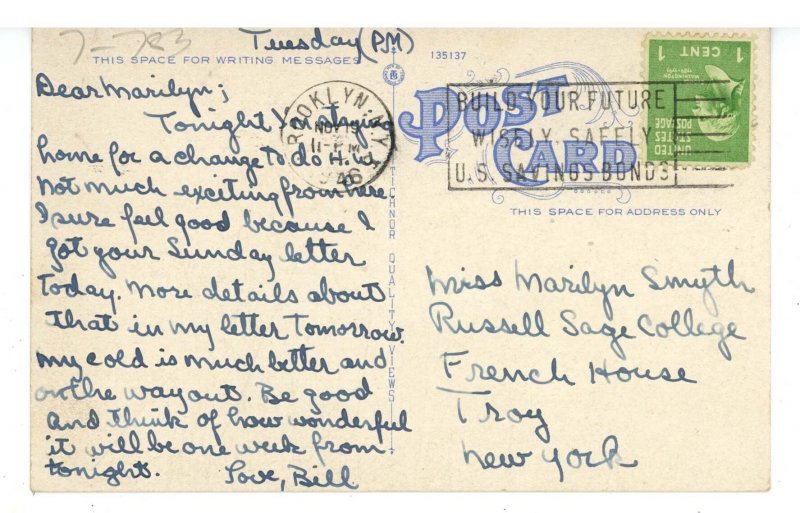 7-783
Tuesday (PM)
THIS SPACE FOR WRITING MESSAGES
Dear Marilyn;
Tonight I'm staying
home for a change to do H.W.
Not much exciting from here.
I sure feel good because I
got your Sunday letter
today. More details about
that in my letter tomorrow.
My cold is much better and
on the way out. Be good
and think of how wonderful
it will be one week from
tonight. Love, Bill
BROOKLYN, N.Y.
NOV 19
11-PM
1946
TICHNOR QUALITY VIEWS
135137
POST CARD
BUILD YOUR FUTURE
WISELY SAFELY
U.S. SAVINGS BONDS
1 CENT 1
WASHINGTON
UNITED
STATES
POSTAGE
THIS SPACE FOR ADDRESS ONLY
Miss Marilyn Smyth
Russell Sage College
French House
Troy
New York